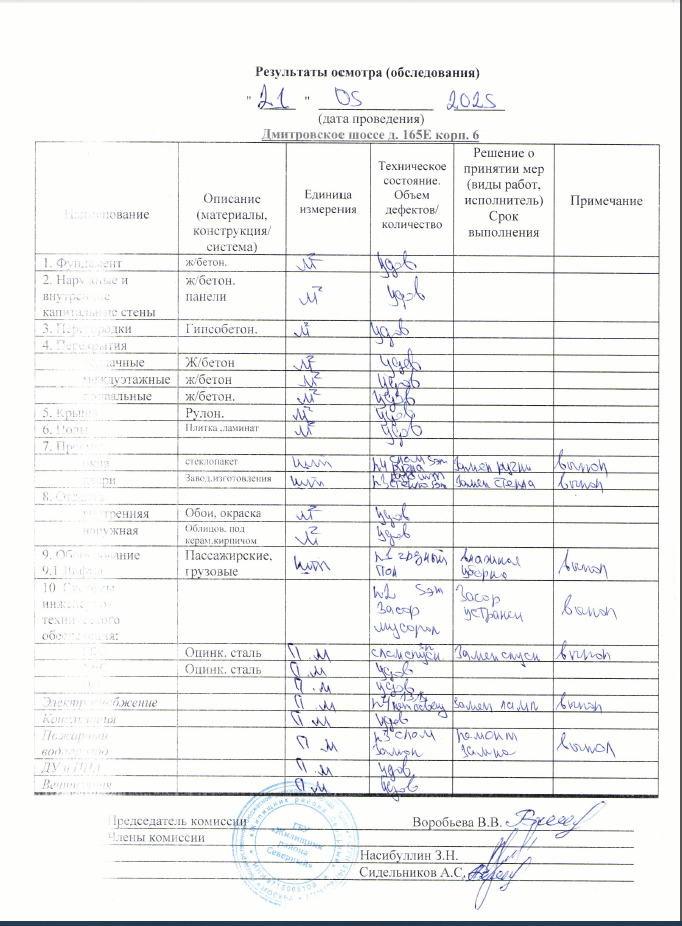 Результаты осмотра (обследования)
" 21 " 05 2025
(дата проведения)
Дмитровское шоссе д. 165Е корп. 6
Наименование
Описание
(материалы,
конструкция/
система)
Единица
измерения
Техническое
состояние.
Объем
дефектов/
количество
Решение о
принятии мер
(виды работ,
исполнитель)
Срок
выполнения
Примечание
1. Фундамент ж/бетон. м² удов
2. Наружные и
внутренние
капитальные стены
ж/бетон.
панели
м² удов
3. Перегородки Гипсобетон. м² удов
4. Перекрытия
чердачные Ж/бетон м² удов
междуэтажные ж/бетон м² удов
подвальные ж/бетон. м² удов
5. Крыша Рулон. м² удов
6. Полы Плитка ,ламинат м² удов
7. Проемы
окна стеклопакет шт п4 слом 5эт
ручка
Замен ручки выпол
двери Завод.изготовления шт п3
стекло
Замен стекла выпол
8. Отделка
внутренняя Обои, окраска м² удов
наружная Облицов. под
керам.кирпичом
м² удов
9. Оборудование
9.1 Лифты
Пассажирские,
грузовые
шт п1 грязный
пол
влажная
уборка
выпол
10 Системы
инженерно-
технического
обеспечения:
п2 5эт
Засор
мусороп
Засор
устранен
выпол
Оцинк. сталь П.м Замен выпол
Оцинк. сталь П.м удов
П.м удов
Электроснабжение П.м Замен ламп выпол
Канализация П.м удов
Пожарный
водопровод
П.м п3 слом
Замок
ремонт
Замка
выпол
ДУ и ППА П.м удов
Вентиляция П.м удов
Председатель комиссии Воробьева В.В.
Члены комиссии
Насибуллин З.Н.
Сидельников А.С.
ГБУ
«Жилищник
района
Северный»